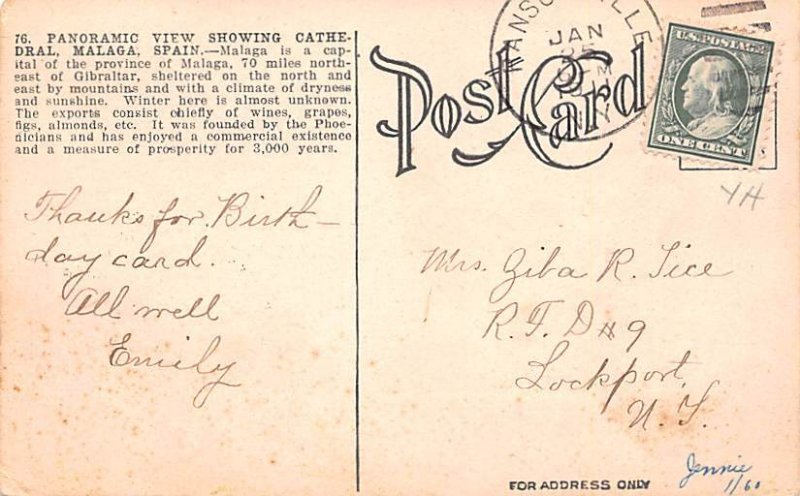 76. PANORAMIC VIEW SHOWING CATHE-
DRAL, MALAGA, SPAIN.—Malaga is a cap-
ital of the province of Malaga, 70 miles north-
east of Gibraltar, sheltered on the north and
east by mountains and with a climate of dryness
and sunshine. Winter here is almost unknown.
The exports consist chiefly of wines, grapes,
figs, almonds, etc. It was founded by the Phoe-
nicians and has enjoyed a commercial existence
and a measure of prosperity for 3,000 years.
Thanks for Birth-
day card.
All well
Emily
Post Card
JAN
25
M
N.Y.
U.S. POSTAGE
ONE CENT
YH
Mrs. Ziba R. Tice
R. F. D #9
Lockport,
N. Y.
FOR ADDRESS ONLY
Jennie
1/60